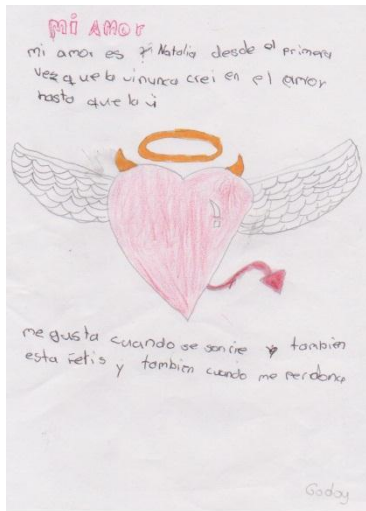 MI AMOR
mi amor es Natalia desde el primera
vez que la vi nunca crei en el amor
hasta que la vi
me gusta cuando se sonrie y tambien
esta fetis y tambien cuando me perdona
Godoy